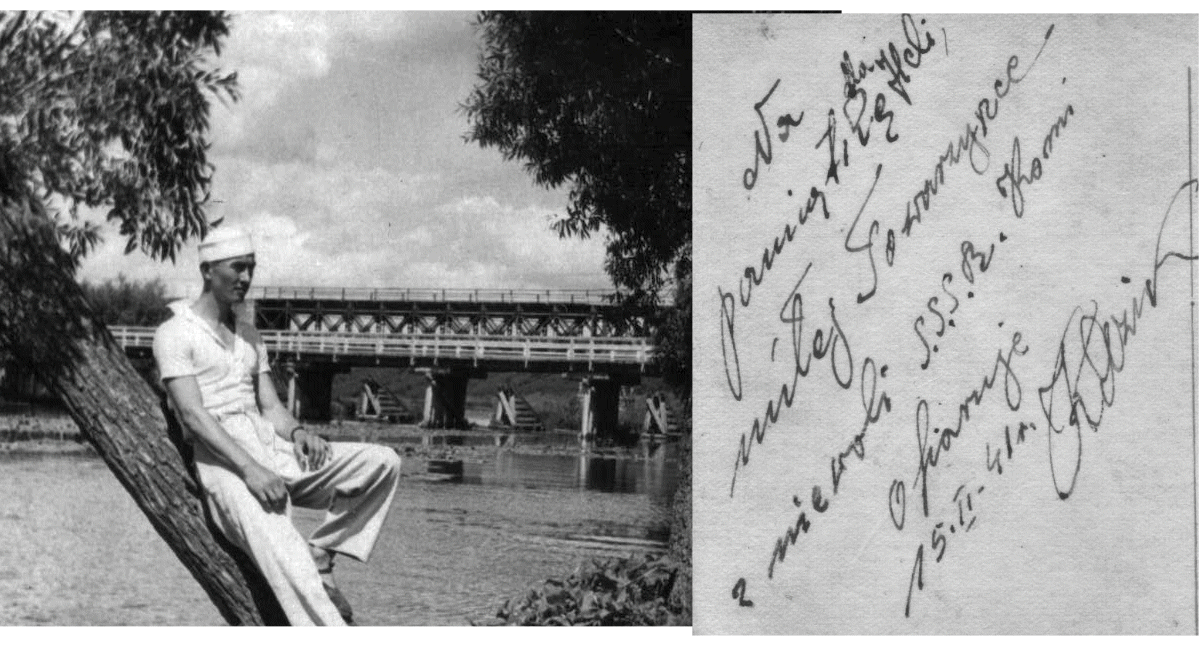 Na
pamiątkę
miłej Towarzyszce
z niewoli S.S.S.R. Komi
ofiaruje
15.II-41r.